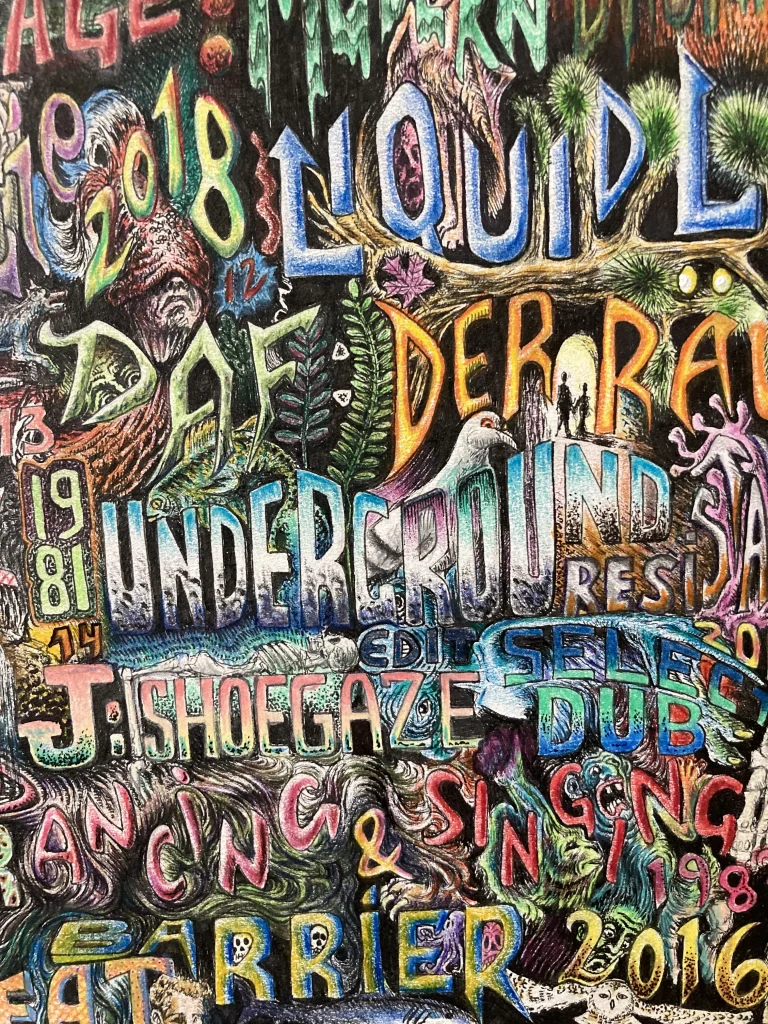 AGE: MODERN
2018 LIQUID L
12
DAF: DER RÄU
13
1981 UNDERGROUND
RESISTA
14 EDIT SELECT 20
J: SHOEGAZE DUB
DANCING & SINGING
198
BARRIER 2016
EAT